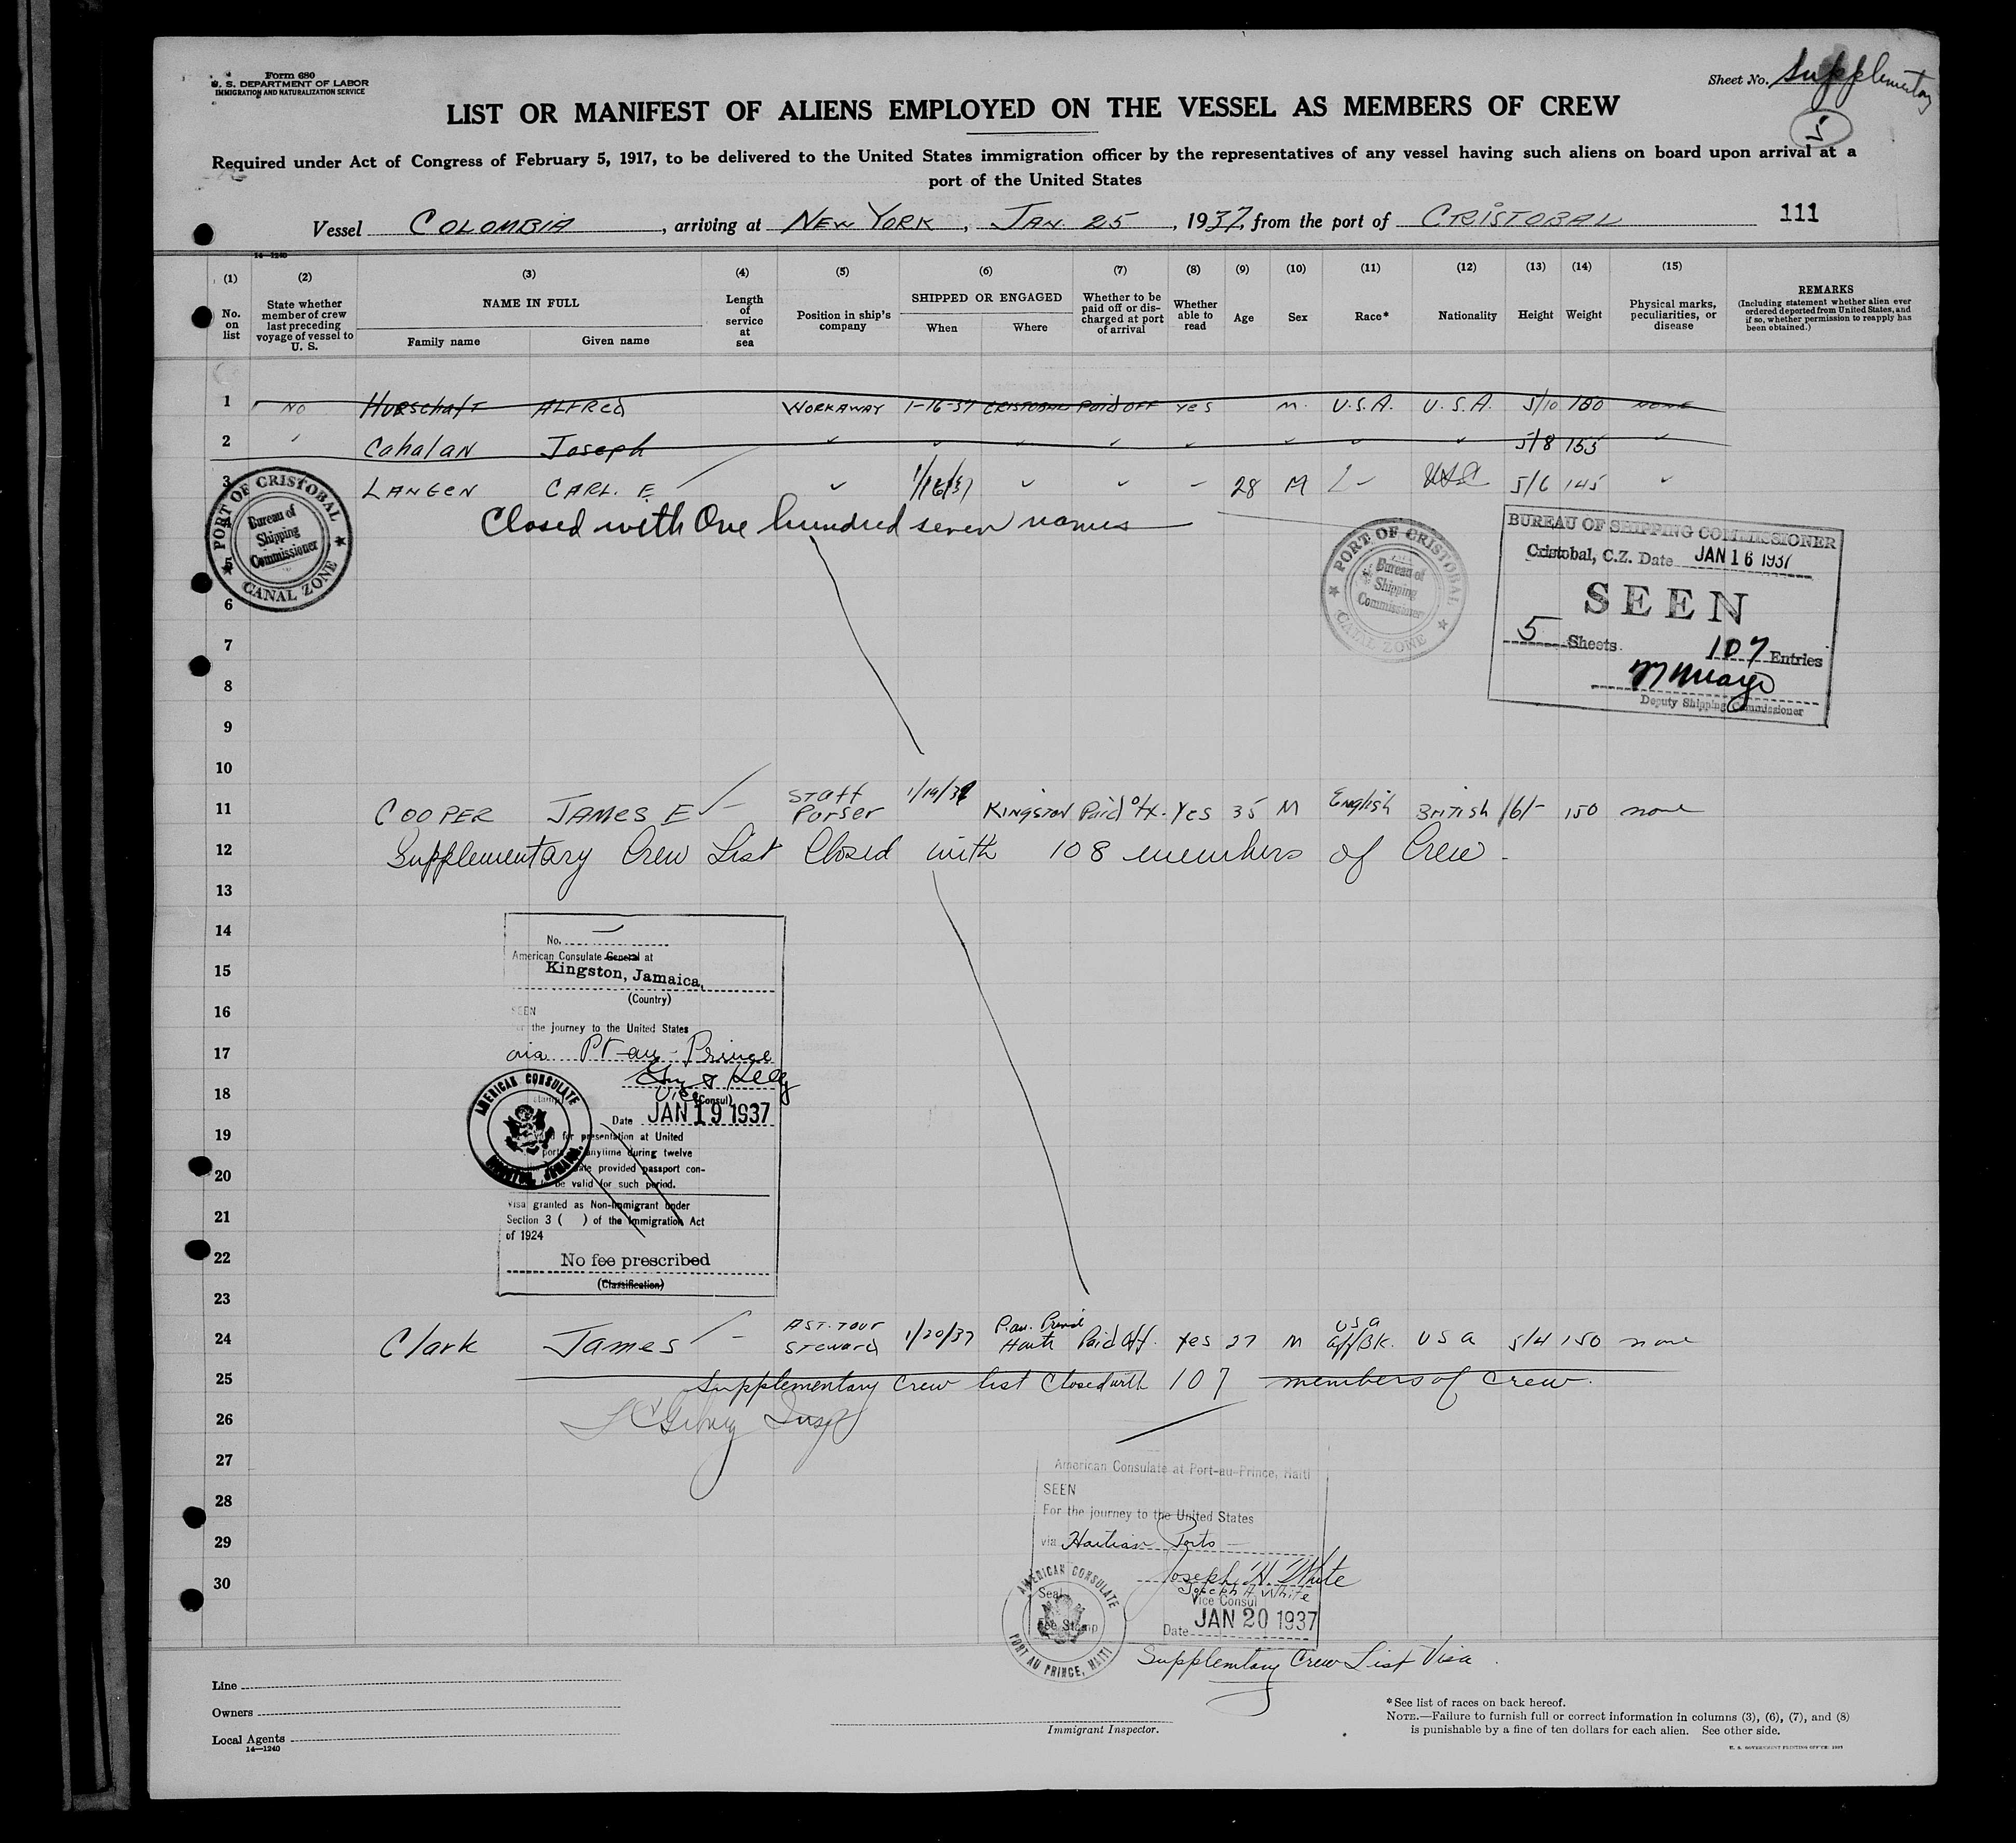 Form 680
U. S. DEPARTMENT OF LABOR
IMMIGRATION AND NATURALIZATION SERVICE
Sheet No. Supplementary
5
LIST OR MANIFEST OF ALIENS EMPLOYED ON THE VESSEL AS MEMBERS OF CREW
Required under Act of Congress of February 5, 1917, to be delivered to the United States immigration officer by the representatives of any vessel having such aliens on board upon arrival at a
port of the United States
Vessel COLOMBIA, arriving at NEW YORK, JAN. 25, 1937, from the port of CRISTOBAL 111
14—1240
(1) No. on list
(2) State whether member of crew last preceding voyage of vessel to U. S.
(3) NAME IN FULL
Family name Given name
(4) Length of service at sea
(5) Position in ship's company
(6) SHIPPED OR ENGAGED
When Where
(7) Whether to be paid off or discharged at port of arrival
(8) Whether able to read
(9) Age
(10) Sex
(11) Race*
(12) Nationality
(13) Height
(14) Weight
(15) Physical marks, peculiarities, or disease
REMARKS
(Including statement whether alien ever ordered deported from United States, and if so, whether permission to reapply has been obtained.)
1 NO Hurschaft ALFRed WORKAWAY 1-16-37 CRISTOBAL Paid OFF Yes M. U.S.A. U.S.A. 5/10 180 NONE
2 ✓ Cahalan Joseph ✓ ✓ ✓ ✓ ✓ ✓ ✓ ✓ 5/8 155 ✓
3 LANGEN CARL. E. ✓ 1/16/37 ✓ ✓ 28 M 5/6 145 ✓
Closed with One hundred seven names
PORT OF CRISTOBAL
Bureau of
Shipping
Commissioner
CANAL ZONE
PORT OF CRISTOBAL
Bureau of
Shipping
Commissioner
CANAL ZONE
BUREAU OF SHIPPING COMMISSIONER
Cristobal, C.Z. Date JAN 16 1937
SEEN
5 Sheets 107 Entries
Deputy Shipping Commissioner
6
7
8
9
10
11 COOPER JAMES E Staff Purser 1/19/37 KINGSTON Paid off. Yes 35 M English British 6/- 150 none
12 Supplementary Crew List Closed with 108 members of Crew.
13
14
15
16
17
18
19
20
21
22
23
No.
American Consulate General at
Kingston, Jamaica,
(Country)
SEEN
for the journey to the United States
via Pt-au-Prince
Vice (Consul)
Date JAN 19 1937
for presentation at United
anytime during twelve
provided passport con-
be valid for such period.
Visa granted as Non-Immigrant under
Section 3 ( ) of the Immigration Act
of 1924
No fee prescribed
(Classification)
AMERICAN CONSULATE
KINGSTON, JAMAICA.
24 Clark James Ast. Tour Steward 1/20/37 P. au. Prince Haiti Paid Off. Yes 27 M USA Af/BK. USA 5/4 150 none
25 Supplementary Crew list Closed with 107 members of Crew.
26
27
28
29
30
American Consulate at Port-au-Prince, Haiti
SEEN
For the journey to the United States
via Haitian Ports
Joseph H. White
Joseph H. White
Vice Consul
Seal
Fee Stamp
Date JAN 20 1937
AMERICAN CONSULATE
PORT AU PRINCE, HAITI
Supplementary Crew List Visa.
Line
Owners
Local Agents
14—1240
Immigrant Inspector.
*See list of races on back hereof.
NOTE.—Failure to furnish full or correct information in columns (3), (6), (7), and (8)
is punishable by a fine of ten dollars for each alien. See other side.